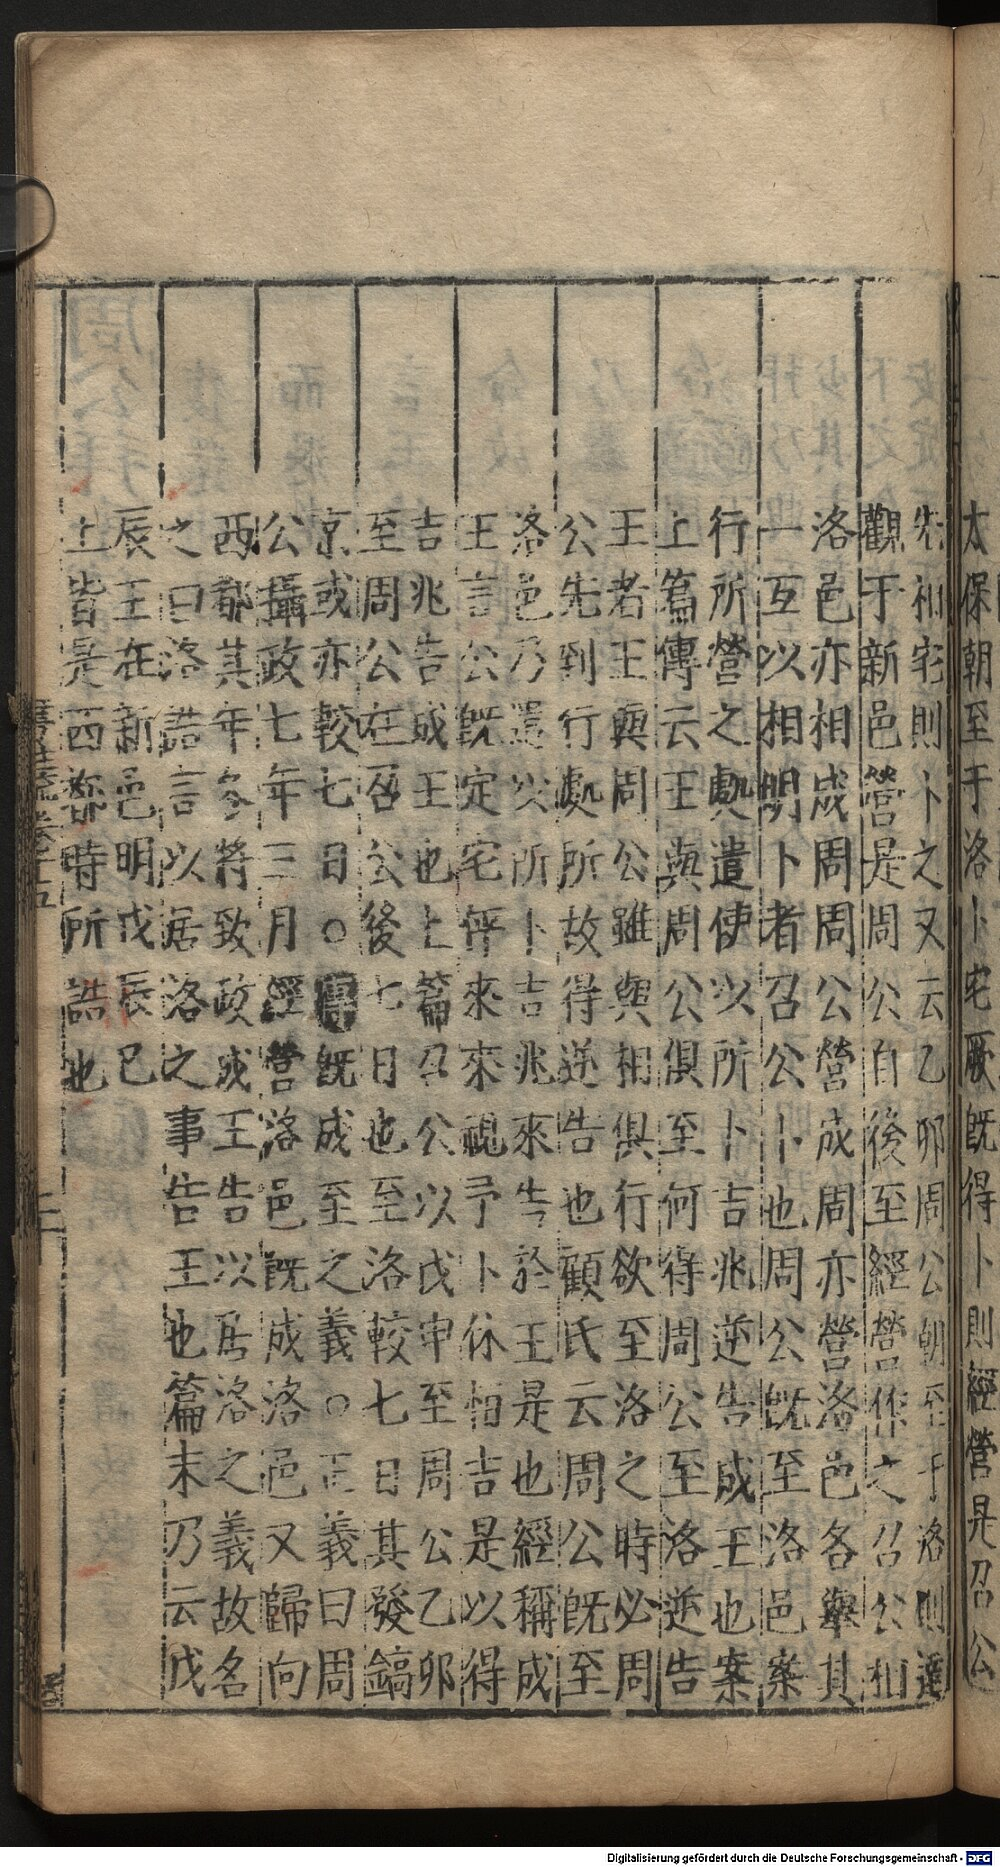 太保朝至于洛卜宅厥既得卜則經營是召公
先相宅則卜之又云乙卯周公朝至于洛則達
觀于新邑營是周公自後至經營作之召公相
洛邑亦相成周周公營成周亦營洛邑各舉其
一互以相明卜者召公卜也周公既至洛邑案
行所營之處遣使以所卜吉兆逆告成王也案
上篇傳云王與周公俱至何得周公至洛逆告
王者王與周公雖與相俱行欲至洛之時必周
公先到行處所故得逆告也顧氏云周公既至
洛邑乃遣以所卜吉兆來告於王是也經稱成
王言公既定宅伻來來視予卜休怕吉是以得
吉兆告成王也上篇召公以戊申至周公乙卯
至周公在召公後七日也至洛較七日其發鎬
京或亦較七日○傳既成至之義○正義曰周
公攝政七年三月經營洛邑既成洛邑又歸向
西都其年冬將致政成王告以居洛之義故名
之曰洛誥言以居洛之事告王也篇末乃云戊
辰王在新邑明戊辰已
上皆是西都時所誥也
書注疏卷十五
Digitalisierung gefördert durch die Deutsche Forschungsgemeinschaft - DFG